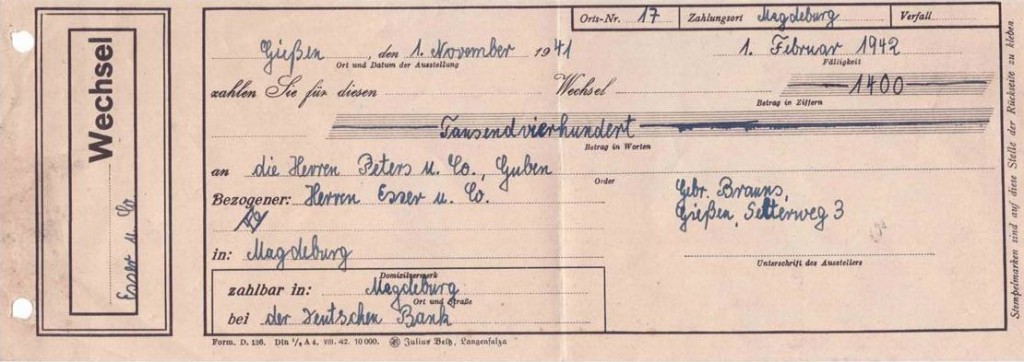 Wechsel
Esser u. Co.
Orts-Nr. 17 Zahlungsort Magdeburg Verfall
Gießen, den 1. November 1941 1. Februar 1942
Ort und Datum der Ausstellung Fälligkeit
zahlen Sie für diesen Wechsel 1400
Betrag in Ziffern
Tausendvierhundert
Betrag in Worten
an die Herren Peters u. Co., Guben
Order
Bezogener: Herren Esser u. Co.
Gebr. Brauns,
Gießen, Selterweg 3
in: Magdeburg
Unterschrift des Ausstellers
Domizilvermerk
zahlbar in: Magdeburg
Ort und Straße
bei der Deutschen Bank
Form. D. 136. Din 1/2 A 4. VIII. 42. 10 000. Julius Beltz, Langensalza
Stempelmarken sind auf diese Stelle der Rückseite zu kleben